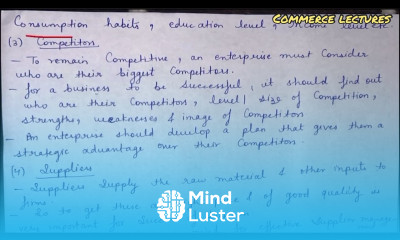 COMMERCE LECTURES
Consumption habits, education level, income level etc
(3) Competitors
- To remain Competitive, an enterprise must Consider
who are their biggest Competitors.
- for a business to be successful, it should find out
who are their Competitors, level/size of Competition,
strengths, weaknesses & image of Competitors
- An enterprise should develop a plan that gives them a
strategic advantage over their Competitors.
(4) Suppliers
- Suppliers Supply the raw material & other inputs to
firms
- So to get these & of good quality is
very important for
Mind
Luster